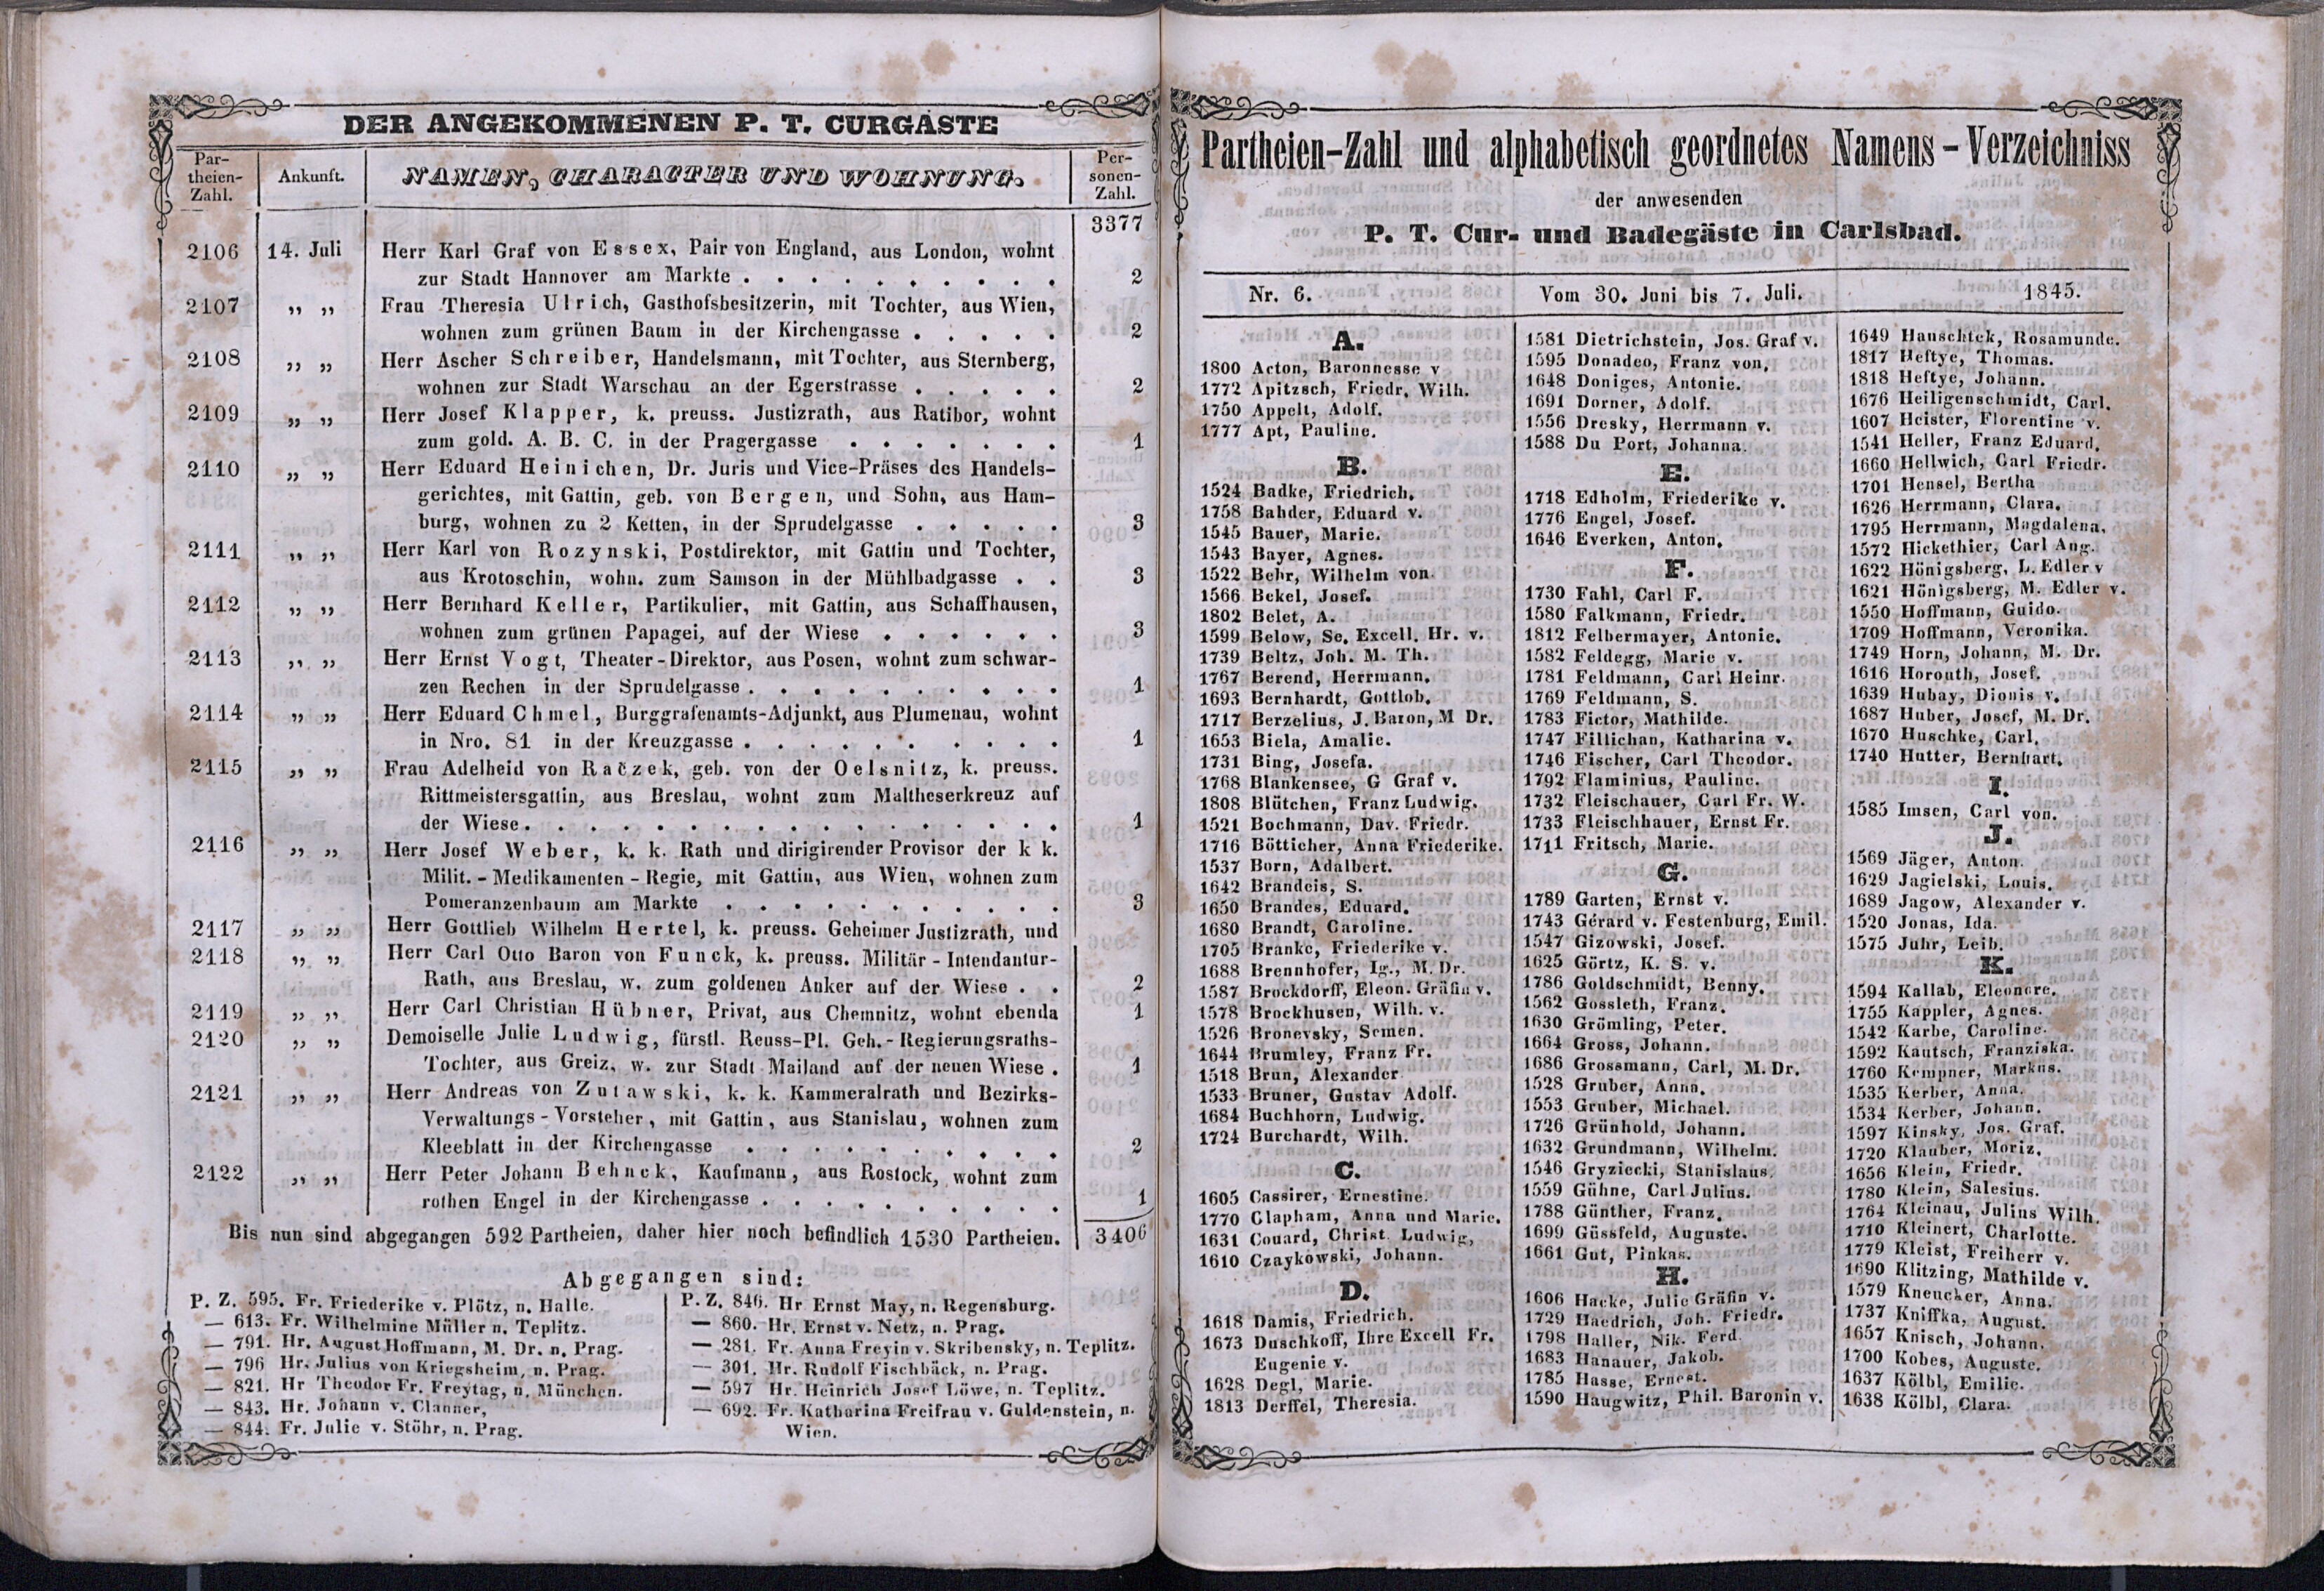 DER ANGEKOMMENEN P. T. CURGÄSTE
Par-
theien-
Zahl.
Ankunft.
NAMEN, CHARACTER UND WOHNUNG.
Per-
sonen-
Zahl.
3377
2106 14. Juli Herr Karl Graf von Essex, Pair von England, aus London, wohnt
zur Stadt Hannover am Markte . . . . . . . . . . 2
2107 „ „ Frau Theresia Ulrich, Gasthofsbesitzerin, mit Tochter, aus Wien,
wohnen zum grünen Baum in der Kirchengasse . . . . . 2
2108 „ „ Herr Ascher Schreiber, Handelsmann, mit Tochter, aus Sternberg,
wohnen zur Stadt Warschau an der Egerstrasse . . . . . 2
2109 „ „ Herr Josef Klapper, k. preuss. Justizrath, aus Ratibor, wohnt
zum gold. A. B. C. in der Pragergasse . . . . . . . 1
2110 „ „ Herr Eduard Heinichen, Dr. Juris und Vice-Präses des Handels-
gerichtes, mit Gattin, geb. von Bergen, und Sohn, aus Ham-
burg, wohnen zu 2 Ketten, in der Sprudelgasse . . . . . 3
2111 „ „ Herr Karl von Rozynski, Postdirektor, mit Gattin und Tochter,
aus Krotoschin, wohn. zum Samson in der Mühlbadgasse . . 3
2112 „ „ Herr Bernhard Keller, Partikulier, mit Gattin, aus Schaffhausen,
wohnen zum grünen Papagei, auf der Wiese . . . . . . 3
2113 „ „ Herr Ernst Vogt, Theater-Direktor, aus Posen, wohnt zum schwar-
zen Rechen in der Sprudelgasse . . . . . . . . . 1
2114 „ „ Herr Eduard Chmel, Burggrafenamts-Adjunkt, aus Plumenau, wohnt
in Nro. 81 in der Kreuzgasse . . . . . . . . . . 1
2115 „ „ Frau Adelheid von Raczek, geb. von der Oelsnitz, k. preuss.
Rittmeistersgattin, aus Breslau, wohnt zum Maltheserkreuz auf
der Wiese . . . . . . . . . . . . . . . . 1
2116 „ „ Herr Josef Weber, k. k. Rath und dirigirender Provisor der k k.
Milit. - Medikamenten - Regie, mit Gattin, aus Wien, wohnen zum
Pomeranzenbaum am Markte . . . . . . . . . . 3
2117 „ „ Herr Gottlieb Wilhelm Hertel, k. preuss. Geheimer Justizrath, und
2118 „ „ Herr Carl Otto Baron von Funck, k. preuss. Militär - Intendantur-
Rath, aus Breslau, w. zum goldenen Anker auf der Wiese . . 2
2119 „ „ Herr Carl Christian Hübner, Privat, aus Chemnitz, wohnt ebenda 1
2120 „ „ Demoiselle Julie Ludwig, fürstl. Reuss-Pl. Geh.- Regierungsraths-
Tochter, aus Greiz, w. zur Stadt Mailand auf der neuen Wiese . 1
2121 „ „ Herr Andreas von Zutawski, k. k. Kammeralrath und Bezirks-
Verwaltungs - Vorsteher, mit Gattin, aus Stanislau, wohnen zum
Kleeblatt in der Kirchengasse . . . . . . . . . . 2
2122 „ „ Herr Peter Johann Behnck, Kaufmann, aus Rostock, wohnt zum
rothen Engel in der Kirchengasse . . . . . . . . . 1
Bis nun sind abgegangen 592 Partheien, daher hier noch befindlich 1530 Partheien. 3406
Abgegangen sind:
P. Z. 595. Fr. Friederike v. Plötz, n. Halle.
— 613. Fr. Wilhelmine Müller n. Teplitz.
— 791. Hr. August Hoffmann, M. Dr. n. Prag.
— 796 Hr. Julius von Kriegsheim, n. Prag.
— 821. Hr Theodor Fr. Freytag, n. München.
— 843. Hr. Johann v. Clanner,
— 844. Fr. Julie v. Stöhr, n. Prag.
P. Z. 846. Hr Ernst May, n. Regensburg.
— 860. Hr. Ernst v. Netz, n. Prag.
— 281. Fr. Anna Freyin v. Skribensky, n. Teplitz.
— 301. Hr. Rudolf Fischbäck, n. Prag.
— 597 Hr. Heinrich Josef Löwe, n. Teplitz.
— 692. Fr. Katharina Freifrau v. Guldenstein, n.
Wien.
Partheien-Zahl und alphabetisch geordnetes Namens-Verzeichniss
der anwesenden
P. T. Cur- und Badegäste in Carlsbad.
Nr. 6. Vom 30. Juni bis 7. Juli. 1845.
A.
1800 Acton, Baronnesse v
1772 Apitzsch, Friedr. Wilh.
1750 Appelt, Adolf.
1777 Apt, Pauline.
B.
1524 Badke, Friedrich.
1758 Bahder, Eduard v.
1545 Bauer, Marie.
1543 Bayer, Agnes.
1522 Behr, Wilhelm von.
1566 Bekel, Josef.
1802 Belet, A.
1599 Below, Se. Excell. Hr. v.
1739 Beltz, Joh. M. Th.
1767 Berend, Herrmann.
1693 Bernhardt, Gottlob.
1717 Berzelius, J. Baron, M Dr.
1653 Biela, Amalie.
1731 Bing, Josefa.
1768 Blankensee, G Graf v.
1808 Blütchen, Franz Ludwig.
1521 Bochmann, Dav. Friedr.
1716 Bötticher, Anna Friederike.
1537 Born, Adalbert.
1642 Brandeis, S.
1650 Brandes, Eduard.
1680 Brandt, Caroline.
1705 Branke, Friederike v.
1688 Brennhofer, Ig., M. Dr.
1587 Brockdorff, Eleon. Gräfin v.
1578 Brockhusen, Wilh. v.
1526 Bronevsky, Semen.
1644 Brumley, Franz Fr.
1518 Brun, Alexander
1533 Bruner, Gustav Adolf.
1684 Buchhorn, Ludwig.
1724 Burchardt, Wilh.
C.
1605 Cassirer, Ernestine.
1770 Clapham, Anna und Marie.
1631 Couard, Christ. Ludwig,
1610 Czaykowski, Johann.
D.
1618 Damis, Friedrich.
1673 Duschkoff, Ihre Excell Fr.
Eugenie v.
1628 Degl, Marie.
1813 Derffel, Theresia.
1581 Dietrichstein, Jos. Graf v.
1595 Donadeo, Franz von.
1648 Doniges, Antonie.
1691 Dorner, Adolf.
1556 Dresky, Herrmann v.
1588 Du Port, Johanna.
E.
1718 Edholm, Friederike v.
1776 Engel, Josef.
1646 Everken, Anton.
F.
1730 Fahl, Carl F.
1580 Falkmann, Friedr.
1812 Felbermayer, Antonie.
1582 Feldegg, Marie v.
1781 Feldmann, Carl Heinr.
1769 Feldmann, S.
1783 Fictor, Mathilde.
1747 Fillichan, Katharina v.
1746 Fischer, Carl Theodor.
1792 Flaminius, Pauline.
1732 Fleischauer, Carl Fr. W.
1733 Fleischhauer, Ernst Fr.
1711 Fritsch, Marie.
G.
1789 Garten, Ernst v.
1743 Gérard v. Festenburg, Emil.
1547 Gizowski, Josef.
1625 Görtz, K. S. v.
1786 Goldschmidt, Benny.
1562 Gossleth, Franz.
1630 Grömling, Peter.
1664 Gross, Johann.
1686 Grossmann, Carl, M. Dr.
1528 Gruber, Anna.
1553 Gruber, Michael.
1726 Grünhold, Johann.
1632 Grundmann, Wilhelm.
1546 Gryziecki, Stanislaus.
1559 Gühne, Carl Julius.
1788 Günther, Franz.
1699 Güssfeld, Auguste.
1661 Gut, Pinkas.
H.
1606 Hacke, Julie Gräfin v.
1729 Haedrich, Joh. Friedr.
1798 Haller, Nik. Ferd
1683 Hanauer, Jakob.
1785 Hasse, Ernest.
1590 Haugwitz, Phil. Baronin v.
1649 Hauschtek, Rosamunde.
1817 Heftye, Thomas.
1818 Heftye, Johann.
1676 Heiligenschmidt, Carl.
1607 Heister, Florentine v.
1541 Heller, Franz Eduard.
1660 Hellwich, Carl Friedr.
1701 Hensel, Bertha
1626 Herrmann, Clara.
1795 Herrmann, Magdalena.
1572 Hickethier, Carl Aug.
1622 Hönigsberg, L. Edler v
1621 Hönigsberg, M. Edler v.
1550 Hoffmann, Guido.
1709 Hoffmann, Veronika.
1749 Horn, Johann, M. Dr.
1616 Horouth, Josef.
1639 Hubay, Dionis v.
1687 Huber, Josef, M. Dr.
1670 Huschke, Carl.
1740 Hutter, Bernhart.
I.
1585 Imsen, Carl von.
J.
1569 Jäger, Anton.
1629 Jagielski, Louis.
1689 Jagow, Alexander v.
1520 Jonas, Ida.
1575 Juhr, Leib.
K.
1594 Kallab, Eleonore.
1755 Kappler, Agnes.
1542 Karbe, Caroline.
1592 Kautsch, Franziska.
1760 Kempner, Markus.
1535 Kerber, Anna.
1534 Kerber, Johann.
1597 Kinsky, Jos. Graf.
1720 Klauber, Moriz.
1656 Klein, Friedr.
1780 Klein, Salesius.
1764 Kleinau, Julius Wilh.
1710 Kleinert, Charlotte.
1779 Kleist, Freiherr v.
1690 Klitzing, Mathilde v.
1579 Kneucker, Anna.
1737 Kniffka, August.
1657 Knisch, Johann.
1700 Kobes, Auguste.
1637 Kölbl, Emilie.
1638 Kölbl, Clara.